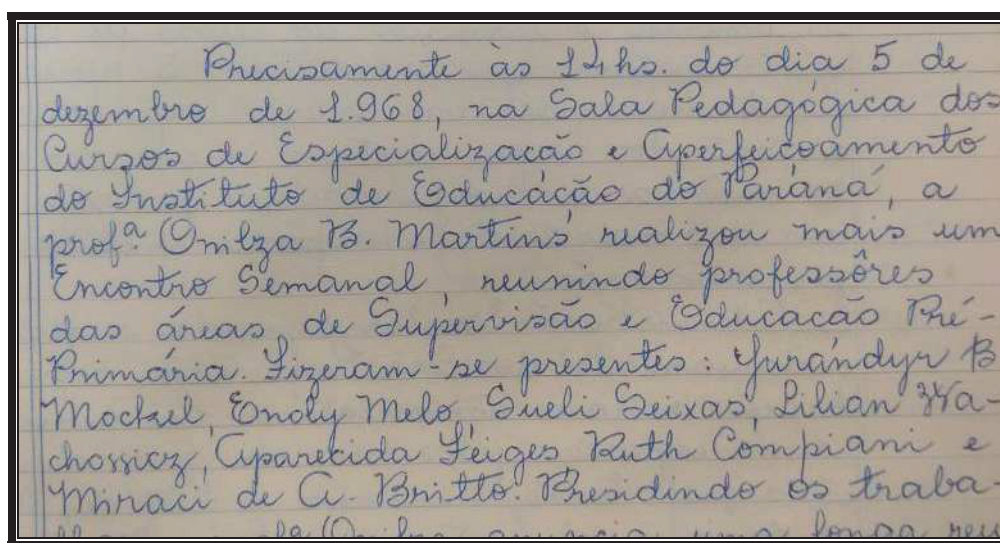 Precisamente às 14hs. do dia 5 de
dezembro de 1.968, na Sala Pedagógica dos
Cursos de Especialização e Aperfeiçoamento
do Instituto de Educação do Paraná, a
prof.ª Onilza B. Martins realizou mais um
Encontro Semanal, reunindo professôres
das áreas de Supervisão e Educação Pré-
Primária. Fizeram-se presentes: Jurandyr B
Mockel, Enoly Melo, Sueli Seixas, Lilian
Aparecida Feiges Ruth Compiani e
Miraci de A. Britto. Presidindo os traba-
uma longa